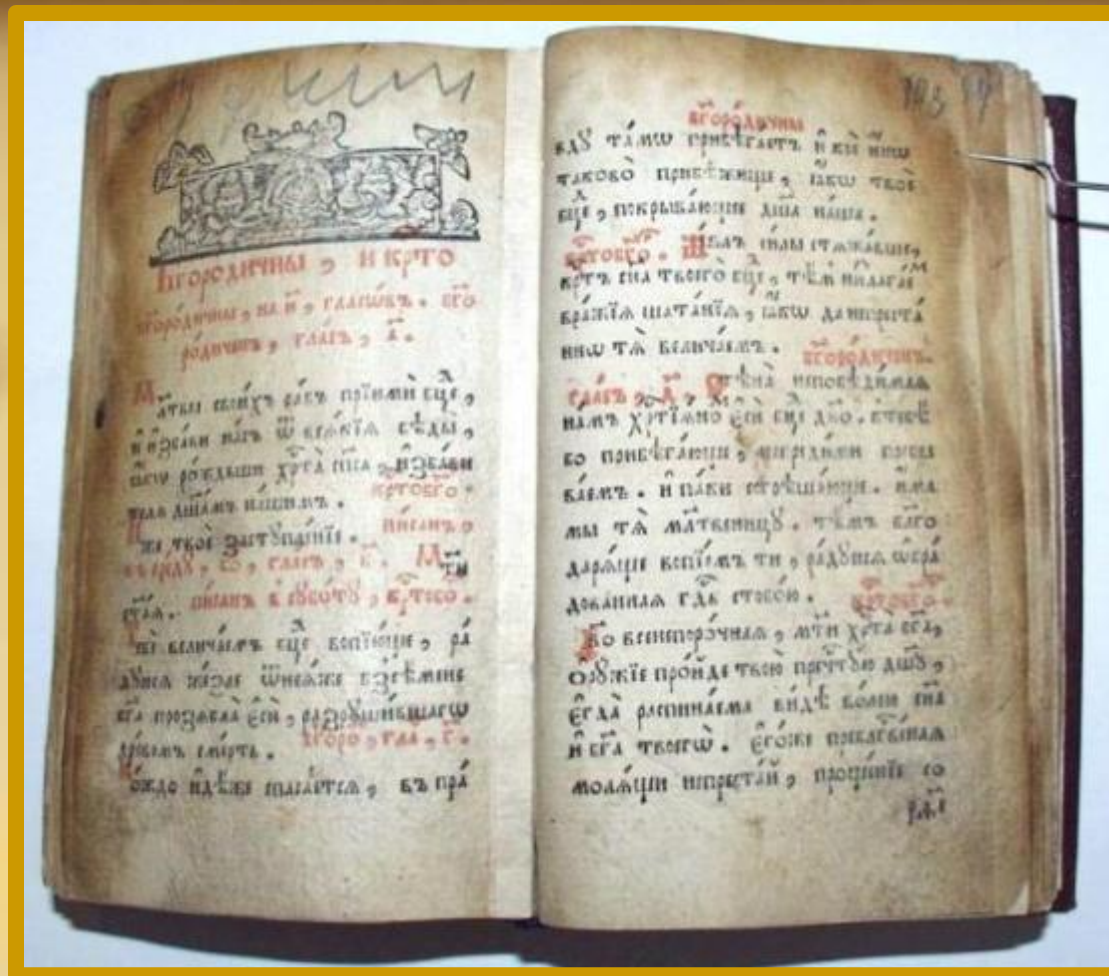 Бг҃ородичны , и крⷭ҇то
бг҃ородичны , на и҃ , гласѡвъ . бг҃о
родиченъ , гласъ , а҃ .
Мл҃твы своихъ рабъ прїими бцⷣе ,
и҆ и҆збави насъ ѿ всѧкїѧ бѣды ,
рождьши хрⷭ҇та сп҃са , и҆збави
телѧ дш҃амъ нашимъ . крⷭ҇тобго .
же твоѐ застꙋпленїе . писанъ ,
въ среда , гласъ , в҃ . Мт҃и
ст҃аѧ . писан в сꙋботꙋ , крⷭ҇тобо .
величаемъ бцⷣе вопїюще , ра
дꙋисѧ жезле ѿнегѡже без̾сѣмене
бг҃а прозѧбла є҆сѝ , разрꙋшившаго
древомъ смерть . бг҃оро , гла , г҃ .
кождо идѣже спасаетсѧ , въ пра
бг҃ородичны
вдꙋ тамѡ прибѣгаетъ и҆ кїи инѡ
таково прибѣжище , ꙗ҆кѡ твоѐ
бцⷣе , покрывающее дш҃а наша .
крⷭ҇тобг҃о . Иже силы стѧжавше ,
крⷭ҇тъ сн҃а твоегѡ бцⷣе , тѣмъ низлагаемъ
вражїѧ шатанїѧ , ꙗ҆кѡ да непреста
ннѡ тѧ величаемъ . бг҃ородиченъ .
гласъ , д҃ , Стѣна непобѣдимаѧ
намъ хрⷭ҇тїѧнѡ є҆сѝ бцⷣе дв҃о . к тебѣ
бо прибѣгающе , невредими пребы
ваемъ . и҆ паки согрѣшающе . има
мы тѧ мл҃твеницꙋ . тѣмъ благо
дарѧще вопїемъ ти , радꙋисѧ ѡбра
дованнаѧ гдⷭ҇ь с тобою . крⷭ҇тобг҃о .
Дв҃о всенепорочнаѧ , мт҃и хрⷭ҇та бг҃а ,
ѻрꙋжїе проиде твою прест҃ꙋю дш҃ꙋ ,
є҆гда распинаема видѣ волеи сн҃а
и҆ бг҃а твоегѡ . є҆гоже преблагс҃венаѧ
молѧщи непрестаи , прощенїе со